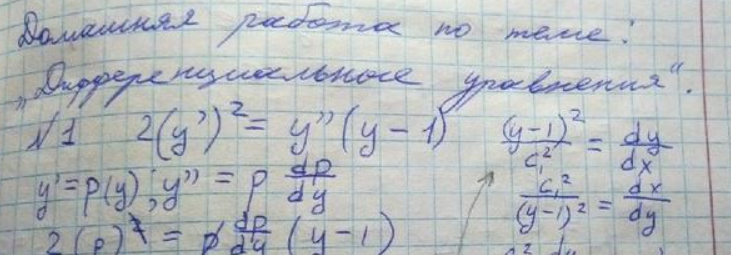 Домашняя работа по теме:
„Дифференциальные уравнения“.
№1 2(y')² = y''(y-1)
y' = p(y); y'' = p dp/dy
2(p)² = p dp/dy (y-1)
(y-1)²/c₁² = dy/dx
c₁²/(y-1)² = dx/dy